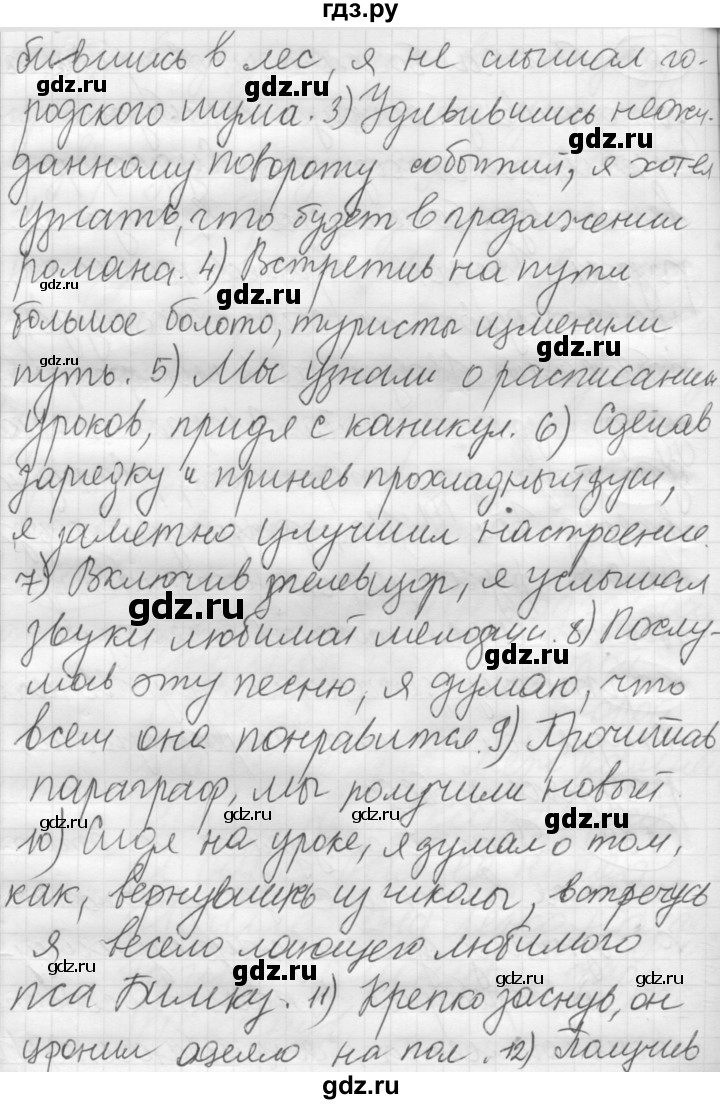 гдз.ру
бившись в лес, я не слышал го-
родского шума. 3) Удивившись неожи-
gdz.ru
данному повороту событий, я хотел
gdz.ru
узнать, что будет в продолжении
романа. 4) Встретив на пути
gdz.ru
gdz.ru
большое болото, туристы изменили
gdz.ru
gdz.ru
путь. 5) Мы узнали о расписании
уроков, придя с каникул. 6) Сделав
gdz.ru
gdz.ru
зарядку и приняв прохладный душ,
gdz.ru
я заметно улучшил настроение.
7) Включив телевизор, я услышал
gdz.ru
gdz.ru
звуки любимой мелодии. 8) Послу-
шав эту песню, я думаю, что
всем она понравится. 9) Прочитав
gdz.ru
параграф, мы получили новый
gdz.ru
gdz.ru
gdz.ru
10) Сидя на уроке, я думал о том,
как, вернувшись из школы, встречусь
gdz.ru
я весело лающего любимого
gdz.ru
gdz.ru
пса Бимку. 11) Крепко заснув, он
уронил одеяло на пол. 12) Получив
gdz.ru
gdz.ru